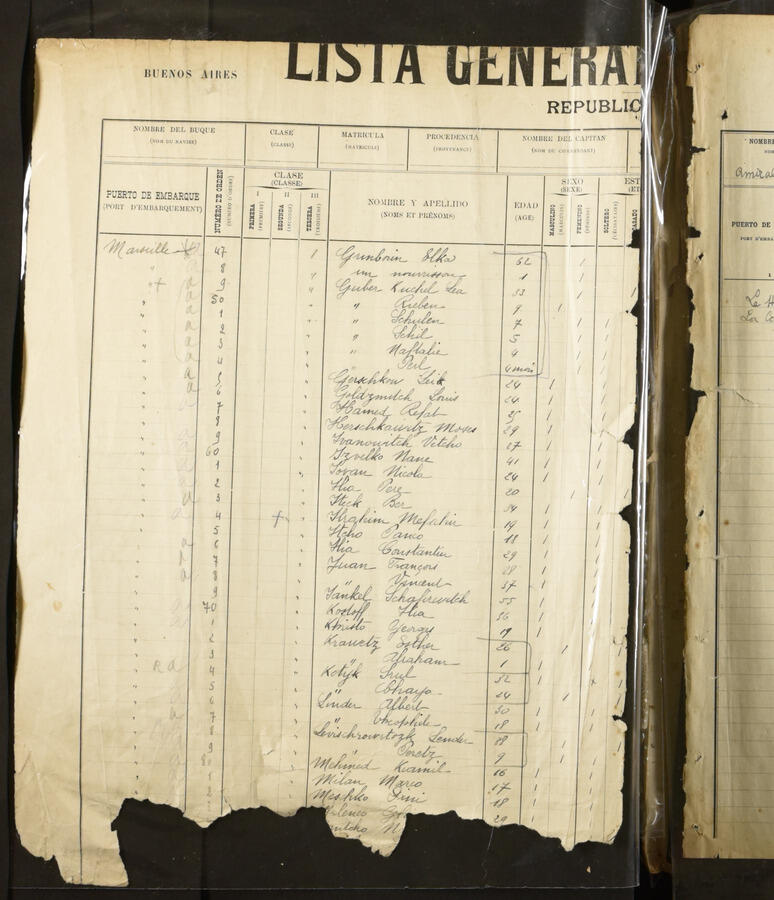 BUENOS AIRES
LISTA GENERA
REPUBLIC
NOMBRE DEL BUQUE
(NOM DU NAVIRE)
CLASE
(CLASSE)
MATRICULA
(MATRICULE)
PROCEDENCIA
(PROVENANCE)
NOMBRE DEL CAPITAN
(NOM DU COMMANDANT)
PUERTO DE EMBARQUE
(PORT D'EMBARQUEMENT)
NÚMERO DE ORDEN
(NUMÉRO D'ORDRE)
CLASE
(CLASSE)
I II III
PRIMERA
(PREMIÈRE)
SEGUNDA
(SECONDE)
TERCERA
(TROISIÈME)
NOMBRE Y APELLIDO
(NOMS ET PRÉNOMS)
EDAD
(AGE)
SEXO
(SEXE)
MASCULINO
(MASCULIN)
FEMENINO
(FÉMININ)
EST
(ÉT
SOLTERO
(CÉLIBATAIRE)
CASADO
Marseille 47 Grinboin Elka 62
8 un nourrisson 1
9 Guber Kuchel Lea 33
50 " Rieben 9
1 " Schulen 7
2 " Schil 5
3 " Naftalie 4
4 " Perl 4 mois
5 Gerschkow Leik 24
6 Goldzmitch Louis 24
7 Hamed Refat 25
8 Herschkawitz Moses 29
9 Ivanowitch Vetcho 27
60 Izvelko Nane 41
1 Jovan Nicola 24
2 Ilia Pere 20
3 Itzik Ber 34
4 Ibrahim 19
5 Itcho Panco 18
6 Ilia Constantin 29
7 Juan François 28
8 " Vincent 37
9 Jankel Schafirevitch 55
70 Kostoff Ilia 36
1 Khristo Georgi 19
2 Krauetz Esther 26
3 " Abraham 1
4 Kotyk Srul 32
5 " Chaya 24
6 Linder Albert 30
7 " Théophile 18
8 Lender 38
9 " Peretz 9
80 Mehmed Kiamil 16
1 Milan Marco 17
2 Meschko 18
29
NOMBRE
NOM
Amiral
PUERTO DE
PORT D'EMBAR
1
Le H
La Co